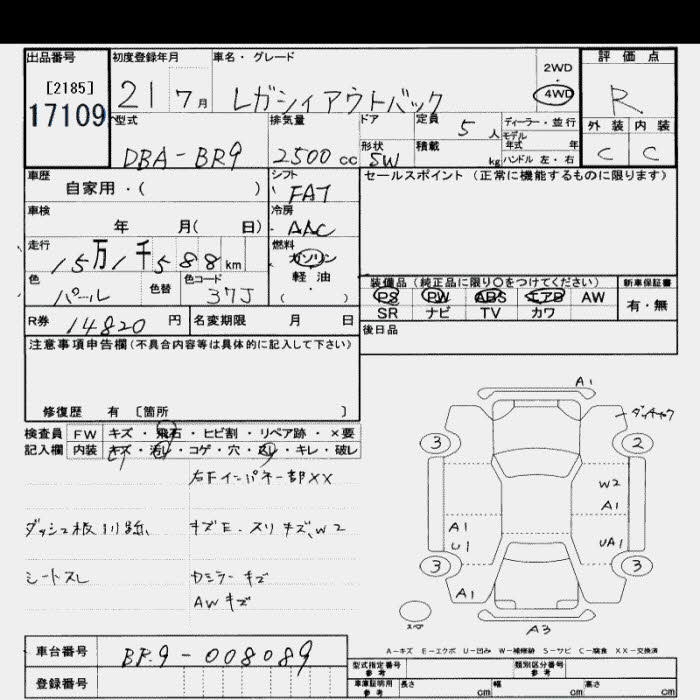 出品番号 初度登録年月 車名・グレード 2WD・4WD 評価点
[2185]
17109 21 7月 レガシィアウトバック R
型式 排気量 ドア 定員 5人 ディーラー・並行 外装 内装
モデル
DBA-BR9 2500cc 形状 SW 積載 kg 年式 年 C C
ハンドル 左・右
車歴 シフト セールスポイント (正常に機能するものに限ります)
自家用・( ) FAT
車検 冷房
年 月( 日) AAC
走行 燃料
15万1千588km ガソリン
色 色替 色コード 軽油 装備品 (純正品に限り○をつけてください) 新車保証書
パール 37J ( ・ ) PS PW ABS エアB AW 有・無
SR ナビ TV カワ
R券 14820円 名変期限 月 日 後日品
注意事項申告欄(不具合内容等は具体的に記入して下さい)
修復歴 有 [箇所 ]
検査員 FW キズ・飛石・ヒビ割・リペア跡・×要
記入欄 内装 キズ・汚レ・コゲ・穴・スレ・キレ・破レ
右Fインパネー部XX
ダッシュ板 キズE、スリキズ、W2
シートスレ Dミラーキズ
AWキズ
A1
3 2
W2
A1 A1
U1 UA1
3 3
A1
スペア
A3
A-キズ E-エクボ U-凹み W-補修跡 S-サビ C-腐食 XX-交換済
車台番号 BR9-008089
型式指定番号 参考 類別区分番号 参考
登録番号 車庫証明用 参考 長さ cm 幅 cm 高さ cm